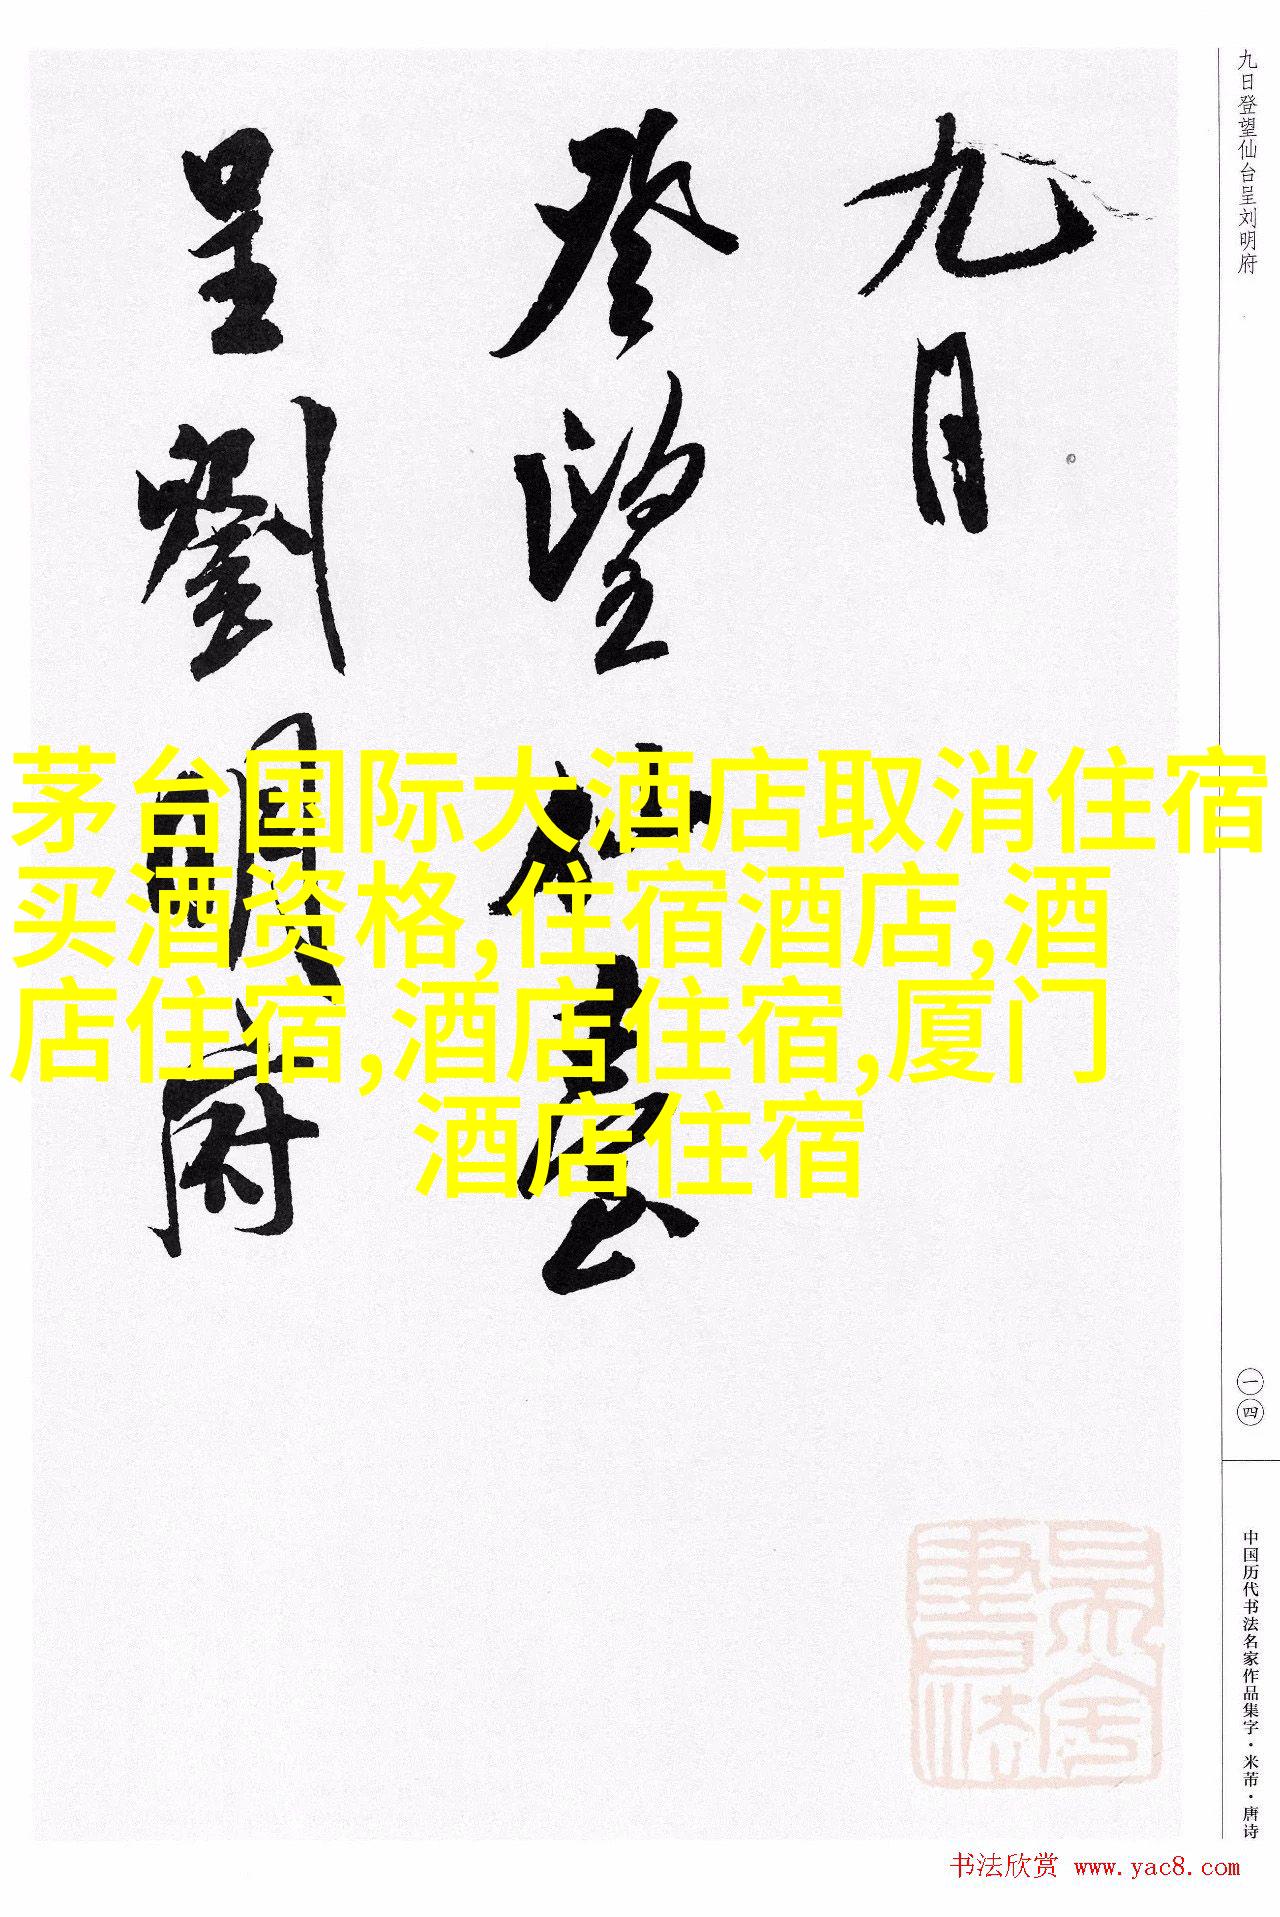 九日
登望仙臺
呈劉明府
茅台国际大酒店取消住宿
买酒资格,住宿酒店,酒
店住宿,酒店住宿,厦门
酒店住宿
九日登望仙台呈刘明府
一四
中国历代书法名家作品集字·米芾·唐诗
书法欣赏 www.yac8.com